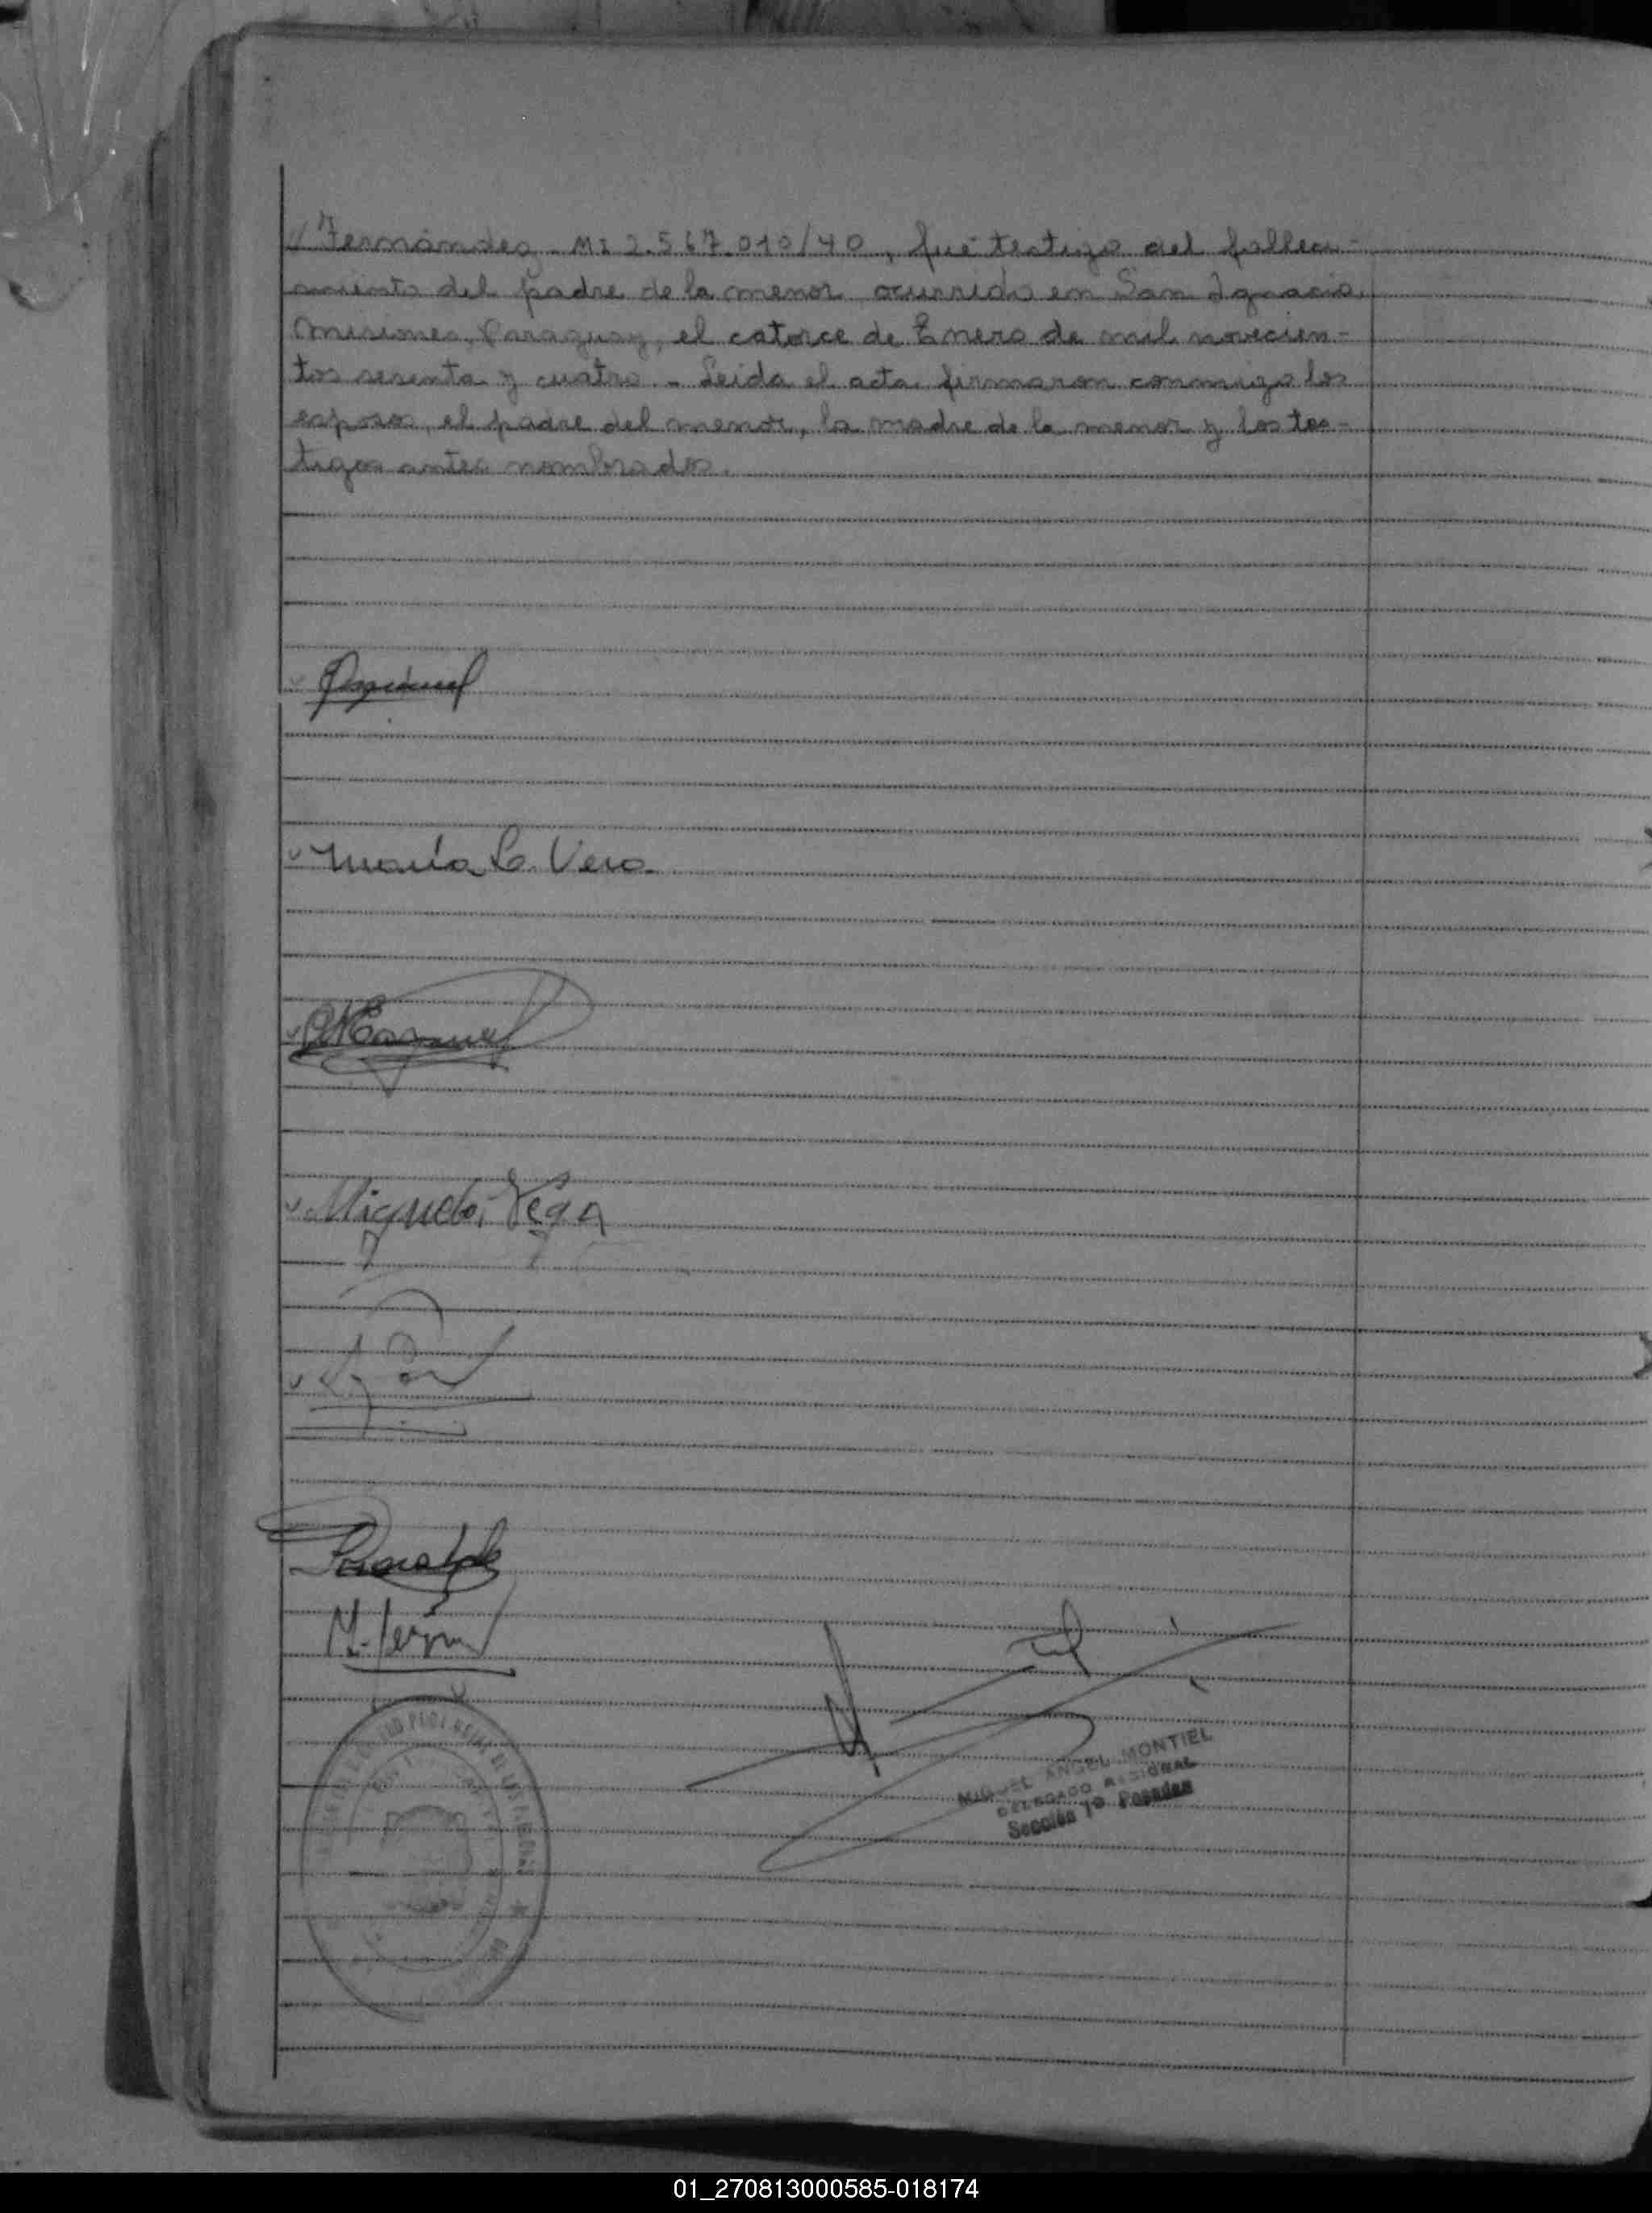 // Fernández - MI 2.567.010/40, fué testigo del falleci-
miento del padre de la menor, ocurrido en San Ignacio,
Misiones, Paraguay, el catorce de Enero de mil novecien-
tos sesenta y cuatro. - Leida el acta firmaron conmigo los
esposos, el padre del menor, la madre de la menor y los tes-
tigos antes nombrados.
María L. Vera
Miguela Vega
MIGUEL ANGEL MONTIEL
DELEGADO REGIONAL
Sección 1ª Posadas
01_270813000585-018174